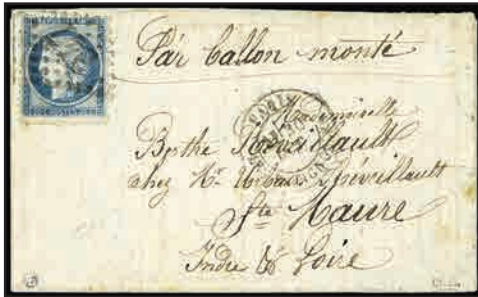 Par ballon monté
Mademoiselle
Berthe Réveillault
chez Mr Urbain Réveillault
Ste Maure
Indre & Loire